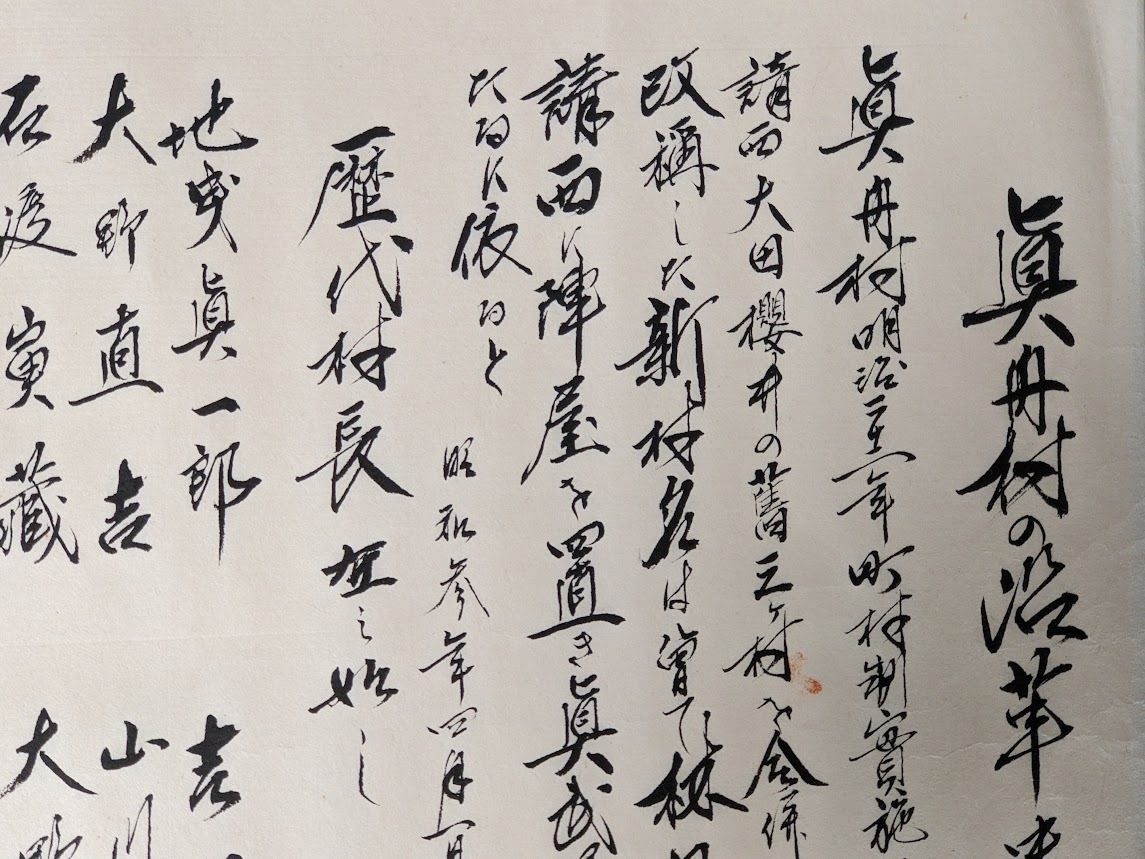 眞舟村の沿革
眞舟村明治二十二年町村制實施
請西大田櫻井の舊三ヶ村を合併
改稱した新村名は曾て林
請西に陣屋を置き眞武
たるに依ると
昭和参年四月一日
歴代村長
地曳眞一郎 吉
大野直吉 山川
石渡寅藏 大野